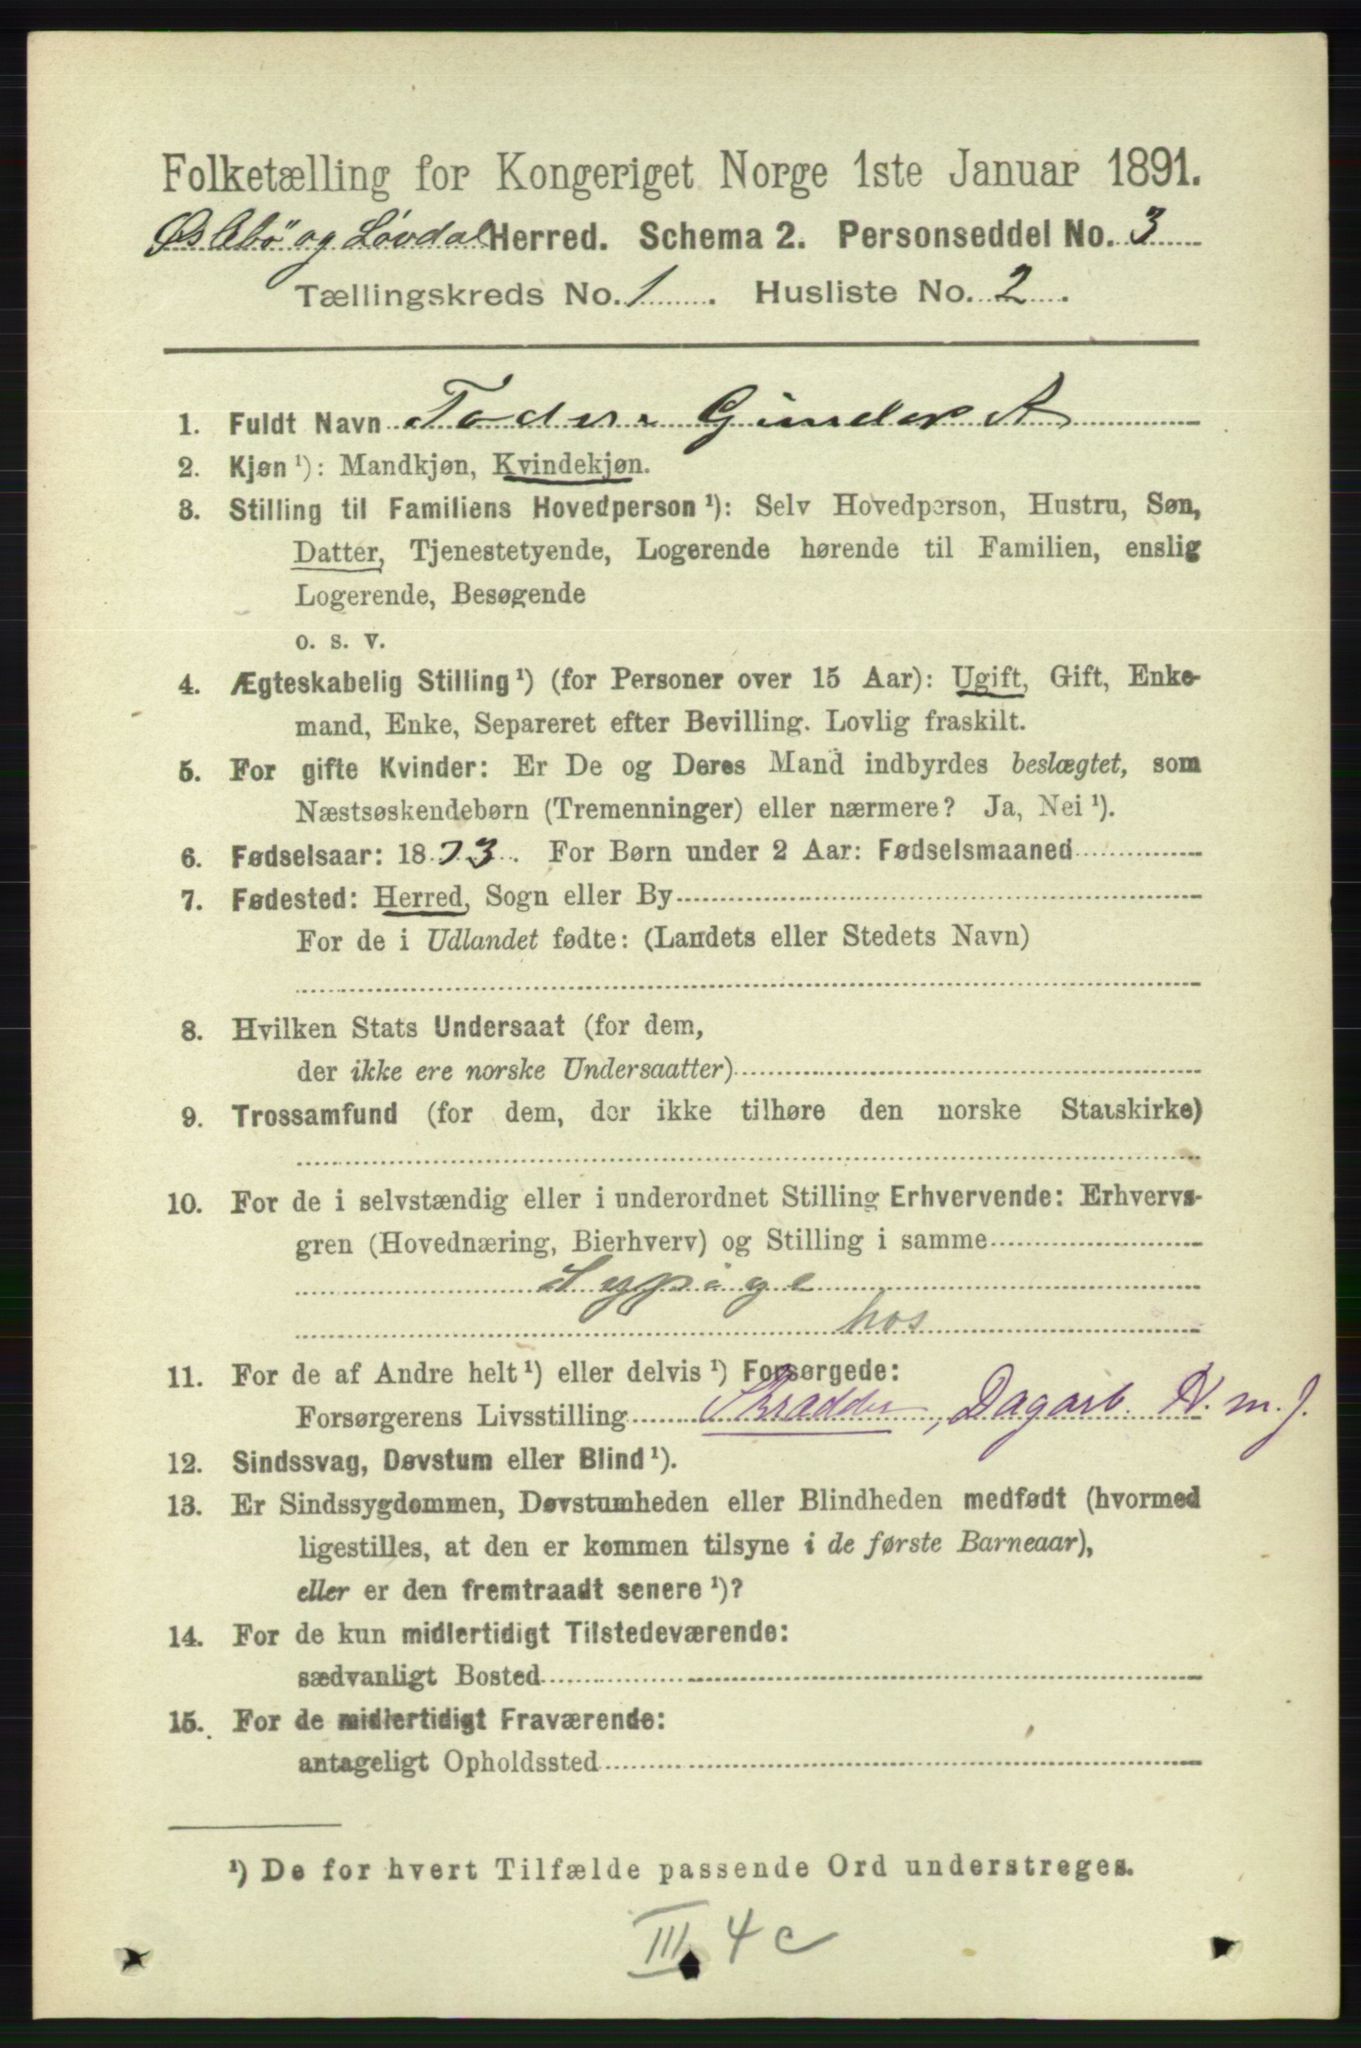 Folketælling for Kongeriget Norge 1ste Januar 1891.
Øslebø og Løvdal Herred. Schema 2. Personseddel No. 3
Tællingskreds No. 1. Husliste No. 2.
1. Fuldt Navn
2. Kjøn ¹): Mandkjøn, Kvindekjøn.
3. Stilling til Familiens Hovedperson ¹): Selv Hovedperson, Hustru, Søn,
Datter, Tjenestetyende, Logerende hørende til Familien, enslig
Logerende, Besøgende
o. s. v.
4. Ægteskabelig Stilling ¹) (for Personer over 15 Aar): Ugift, Gift, Enke-
mand, Enke, Separeret efter Bevilling. Lovlig fraskilt.
5. For gifte Kvinder: Er De og Deres Mand indbyrdes beslægtet, som
Næstsøskendebørn (Tremenninger) eller nærmere? Ja, Nei ¹).
6. Fødselsaar: 1873. For Børn under 2 Aar: Fødselsmaaned
7. Fødested: Herred, Sogn eller By
For de i Udlandet fødte: (Landets eller Stedets Navn)
8. Hvilken Stats Undersaat (for dem,
der ikke ere norske Undersaatter)
9. Trossamfund (for dem, der ikke tilhøre den norske Statskirke)
10. For de i selvstændig eller i underordnet Stilling Erhvervende: Erhvervs-
gren (Hovednæring, Bierhverv) og Stilling i samme
Sypige
hos
11. For de af Andre helt ¹) eller delvis ¹) Forsørgede:
Forsørgerens Livsstilling Skrædder, Dagarb. N. m. J.
12. Sindssvag, Døvstum eller Blind ¹).
13. Er Sindssygdommen, Døvstumheden eller Blindheden medfødt (hvormed
ligestilles, at den er kommen tilsyne i de første Barneaar),
eller er den fremtraadt senere ¹)?
14. For de kun midlertidigt Tilstedeværende:
sædvanligt Bosted
15. For de midlertidigt Fraværende:
antageligt Opholdssted
¹) De for hvert Tilfælde passende Ord understreges.
III. 4 c